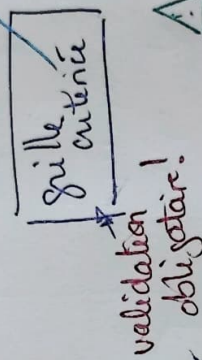 grille
critériée
validation
obligatoire!